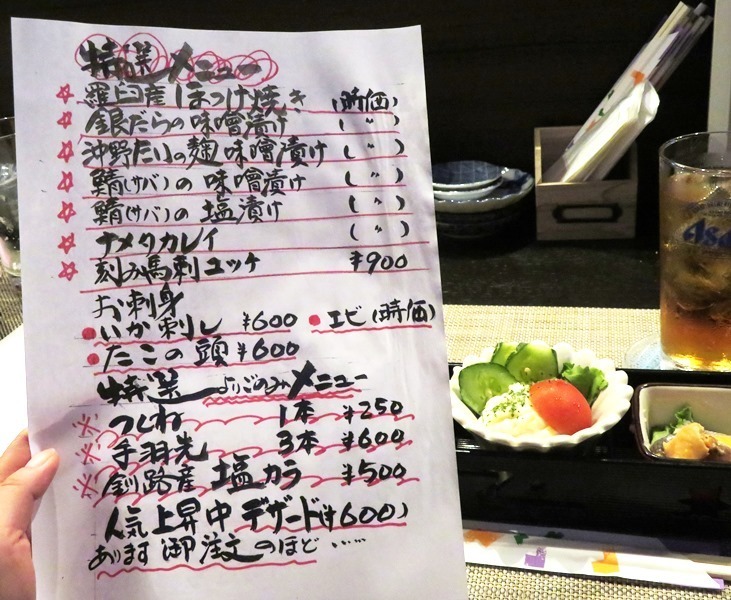 特選メニュー
☆ 羅臼産ほっけ焼き (時価)
☆ 銀だらの味噌漬け (〃)
☆ 沖野たいの麹味噌漬け (〃)
☆ 鯖(サバ)の味噌漬け (〃)
☆ 鯖(サバ)の塩漬け (〃)
☆ ナメタカレイ (〃)
☆ 刻み馬刺ユッケ ¥900
お刺身
● いか刺し ¥600 ● エビ (時価)
● たこの頭 ¥600
特選よりごのみメニュー
※ つくね 1本 ¥250
※ 手羽先 3本 ¥600
※ 釧路産 塩カラ ¥500
人気上昇中 デザード(¥600)
あります 御注文のほど……
Asa